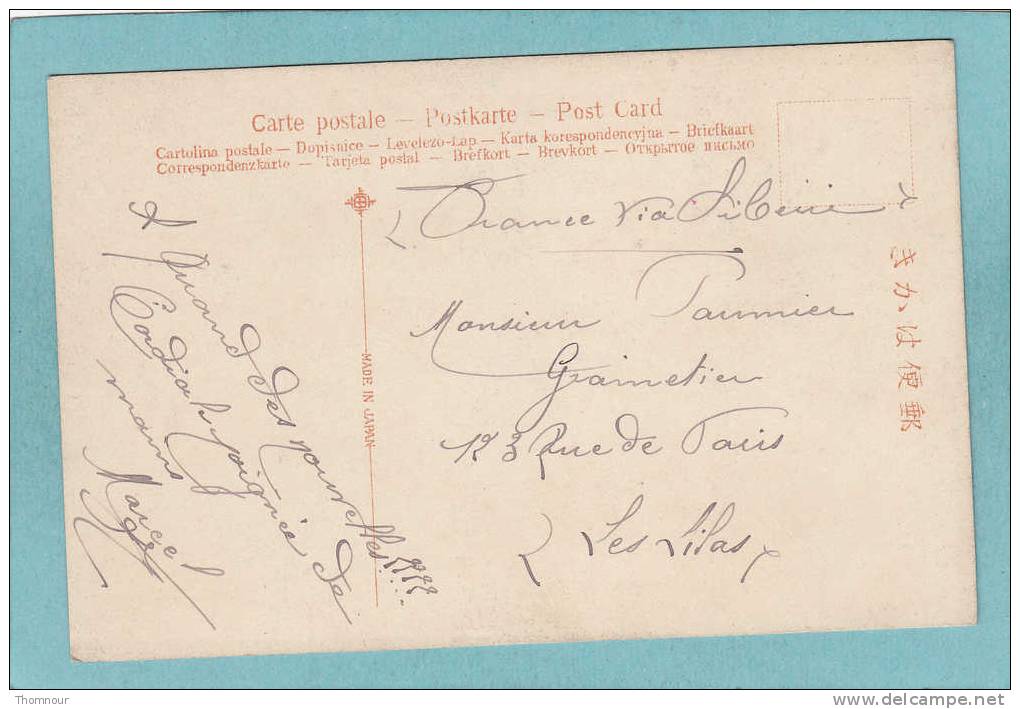 Carte postale – Postkarte – Post Card
Cartolina postale – Dopisnice – Levelezo-Lap – Karta korespondencyjna – Briefkaart
Correspondenzkarte – Tarjeta postal – Brefkort – Brevkort – Открытое письмо
À Quand des nouvelles!!!!
Cordiale poignée de
mains
Marcel
MADE IN JAPAN
(France via Sibérie)
Monsieur Paumier
Grainetier
123 Rue de Paris
(Les Lilas)
きかは便郵
Thomnour
http://www.delcampe.net